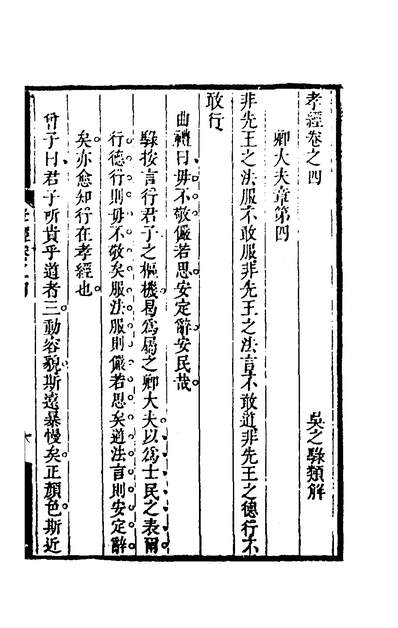 孝經卷之四
吳之騄類解
卿大夫章第四
非先王之法服不敢服非先王之法言不敢道非先王之德行不
敢行
曲禮曰毋不敬儼若思安定辭安民哉
騄按言行君子之樞機曷為屬之卿大夫以為士民之表爾
行德行則毋不敬矣服法服則儼若思矣道法言則安定辭
矣亦愈知行在孝經也
曾子曰君子所貴乎道者三動容貌斯遠暴慢矣正顏色斯近